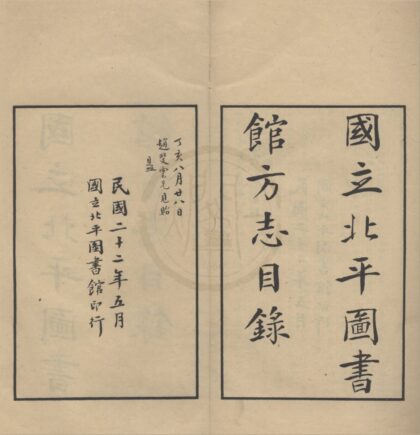 國立北平圖書
館方志目錄
丁亥八月廿八日
趙斐雲兄見貽
民國二十二年五月
國立北平圖書館印行